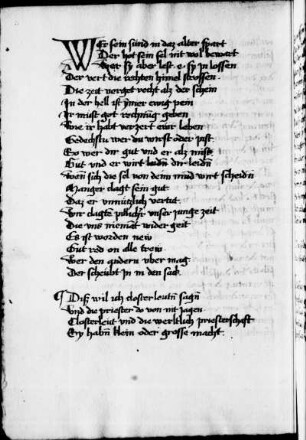 Wer sein sünd in daz alter spart
Der hot sein sel nit wol bewart
Wart sy aber lest e sy in lossen
Der vert die rechten himel strossen
Die zeit vorget recht als der schein
In der hell ist ymer ewig pein
Ir must got rechnüg geben
Wie ir habt verzert ewr leben
Gedechstu wer du wirst oder pist
Eo wer dir gut vnd er alz mist
Gut vnd er wirt laidn dir leidn
Wenn sich die sel von dem mund wirt scheidn
Manger clagt sein gut
Daz er vnnützlich vertut
Wir clagte pillicher vnser junge zeit
Die vns niemant wider geit
Es ist worden new
Gut red on alle trew
Wer den andern vber mag
Der scheubt in in den sack
Diß wil ich closterleutn sagn
Vnd die priester do von nit jagen
Closterleut vnd die wertlich priesterschaft
Sy habn klein oder grosse macht